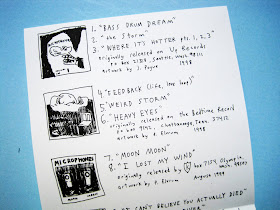 1. "BASS DRUM DREAM"
2. "the Storm"
3. "WHERE IT'S HOTTER pts. 1, 2, 3"
originally released on Up Records
po box 21328, Seattle, WA 98111
artwork by J. 1998
4. "FEEDBACK (life, love, loop)"
5. "WEIRD STORM"
6. "HEAVY EYES"
originally released on the Bedtime Record
po box Chattanooga, Tenn. 37412
artwork by P. Elvrum 1998
MICROPHONES
MOON MOON
7. "MOON MOON"
8. "I LOST MY WIND"
originally released by K box 7154 Olympia
artwork by P. Elvrum August 1999
CAN'T BELIEVE YOU ACTUALLY DIED"